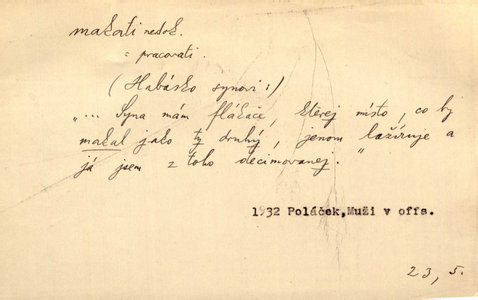 makati nedok.
= pracovati.
(Habásko synovi:)
"... Syna mám flákače, kterej místo, co by
makal jako ty druhý, jenom lažíruje a
já jsem z toho decimovanej."
1932 Poláček,Muži v offs.
23, 5.